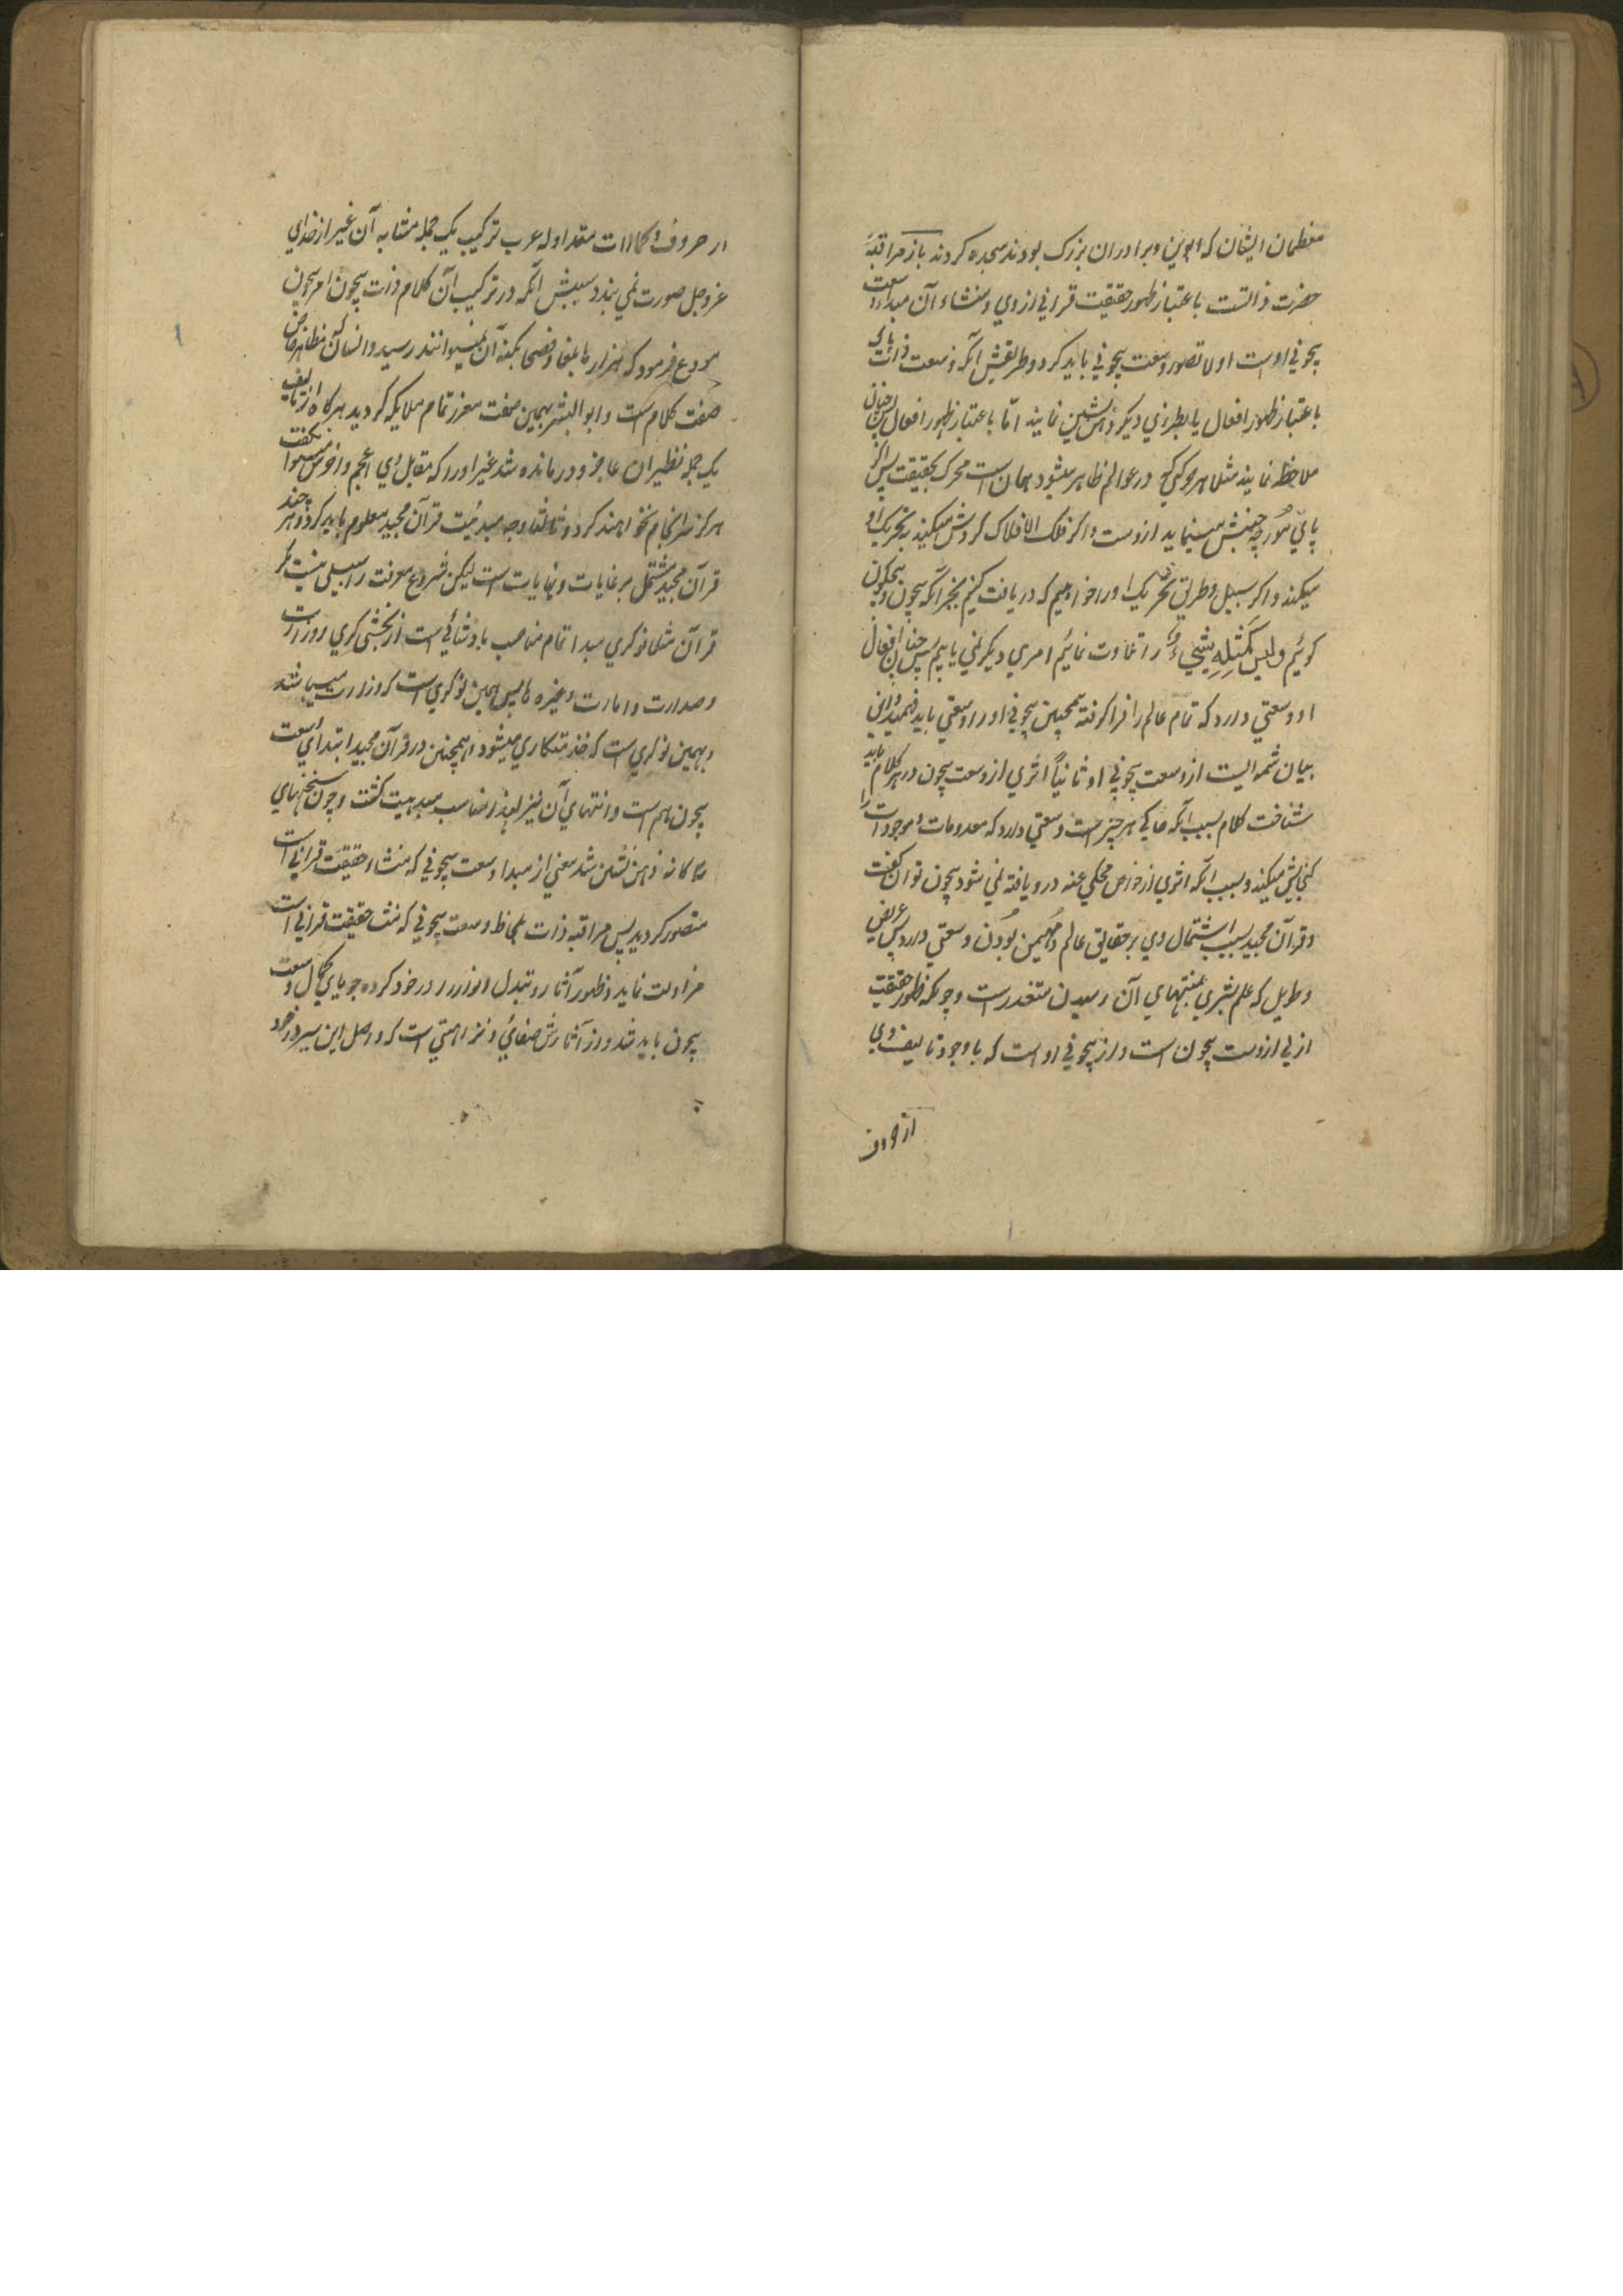 معظمان ایشان که ابوین وبرادران بزرک بودند سجده کردند باز مراقبهٔ
حضرت ذاتست باعتبار ظهور حقیقت قرانی ازوی ومنشاء آن مبداء وسعت
بیچونی اوست اولا تصور وسعت بیچونی باید کرد وطریقش آنکه وسعت ذات
باعتبار ظهور افعال یا بطرزی دیکر ذهن نشین نمایند امّا باعتبار ظهور افعال پس چنان
ملاحظه نمایند مثلا هر حرکتی که در عوالم ظاهر میشود همان است محرک بحقیقت پس اکر
پای مورچه جنبش مینماید ازوست واکر فلک الافلاک کردش میکند بتحریک او
میکند واکر سبیل وطریق تحریک اورا خواهیم که دریافت کنیم بجز آنکه بیچون وبیچکون
کوئیم ولیس کمثله شیء را تلاوت نمائیم امری دیکر نمی یابیم پس چنان افعال
او وسعتی دارد که تمام عالم را فراکرفته همچنین بیچونی اورا وسعتی باید فهمید واین
بیان شمه ایست از وسعت بیچونی او ثانیاً اثری از وسعت بیچون در هر کلام باید
شناخت کلام بسبب آنکه حاکی هر چیز است وسعتی دارد که معدومات وموجودات را
کنجایش میکند وبسبب آنکه اثری از خواص محکی عنه درو یافته نمی شود بیچون توان کفت
وقرآن مجید بسبب اشتمال وی بر حقایق عالم ومهیمن بودن وسعتی دارد بس عریض
وطویل که علم بشری بمنتهای آن رسیدن متعذر است وچونکه ظهور حقیقت
ازلی ازوست بیچون است واز بیچونی اوست که باوجود تالیف وی
از حروف
از حروف وکلمات متداوله عرب ترکیب یک جمله مشابه آن غیر از خدای
عزوجل صورت نمی بندد سببش آنکه در ترکیب آن کلام ذات بیچون امر بیچون
مودع فرمود که هزارها بلغا وفصحا بکنه آن نمیتوانند رسید وانسان که مظاهر خاص
صفت کلام است وابو البشر بهمین صفت معزز تمام ملایکه کردید هرکاه از تالیف
یک جمله نظیر آن عاجز ودرمانده شد غیر اورا که مقابل وی اعجم واخرس میتوان کفت
هرکز سرانجام نخواهند کرد وثالثا وجه مبدئیت قرآن مجید معلوم باید کرد وهر چند
قرآن مجید مشتمل بر غایات ونهایات است لیکن شروع معرفت را سبیلی نیست مکر
قرآن مثلا نوکری مبدا تمام مناصب بادشائی است از بخشی کری ووزارت
وصدارت وامارت وغیره پس همین نوکری است که وزارت میباشد
وبهمین نوکری است که خدمتکاری میشود همچنین در قرآن مجید ابتدای وسعت
بیچون هم است وانتهای آن نیز لهذا مناسب مبدئیت کشت وچون سخنهای
ثلاثه ذهن نشین شد معنی از مبدا وسعت بیچونی که منشاء حقیقت قرانی است
متصور کردید پس مراقبه ذات بلحاظ وسعت بیچونی که منشاء حقیقت قرانی است
مزاولت نماید وظهور آثار وتبدل انوار در خود کرده جویای کمال وسعت
بیچون باید شد واز آثارش صفائی ونزاهتی است که واصل این سیر در خود